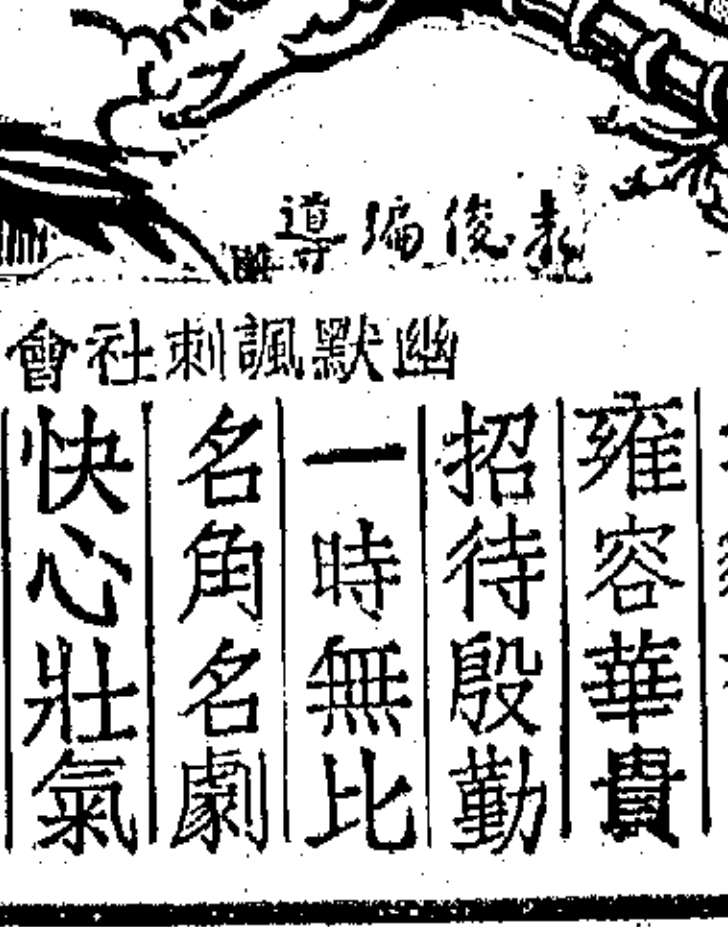 俊編導
幽默諷刺社會
雍容華貴
招待殷勤
一時無比
名角名劇
快心壯氣